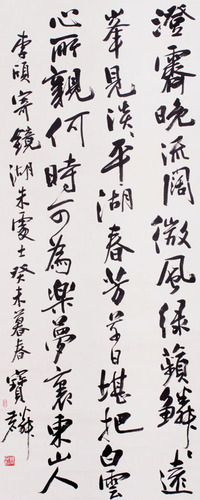 澄霽晚流闊微風綠蘋鱗〻遠
峯見淡〻平湖春芳草日堪把白雲
心所親何時可為樂夢裏東山人
李頎寄鏡湖朱處士癸未暮春寶